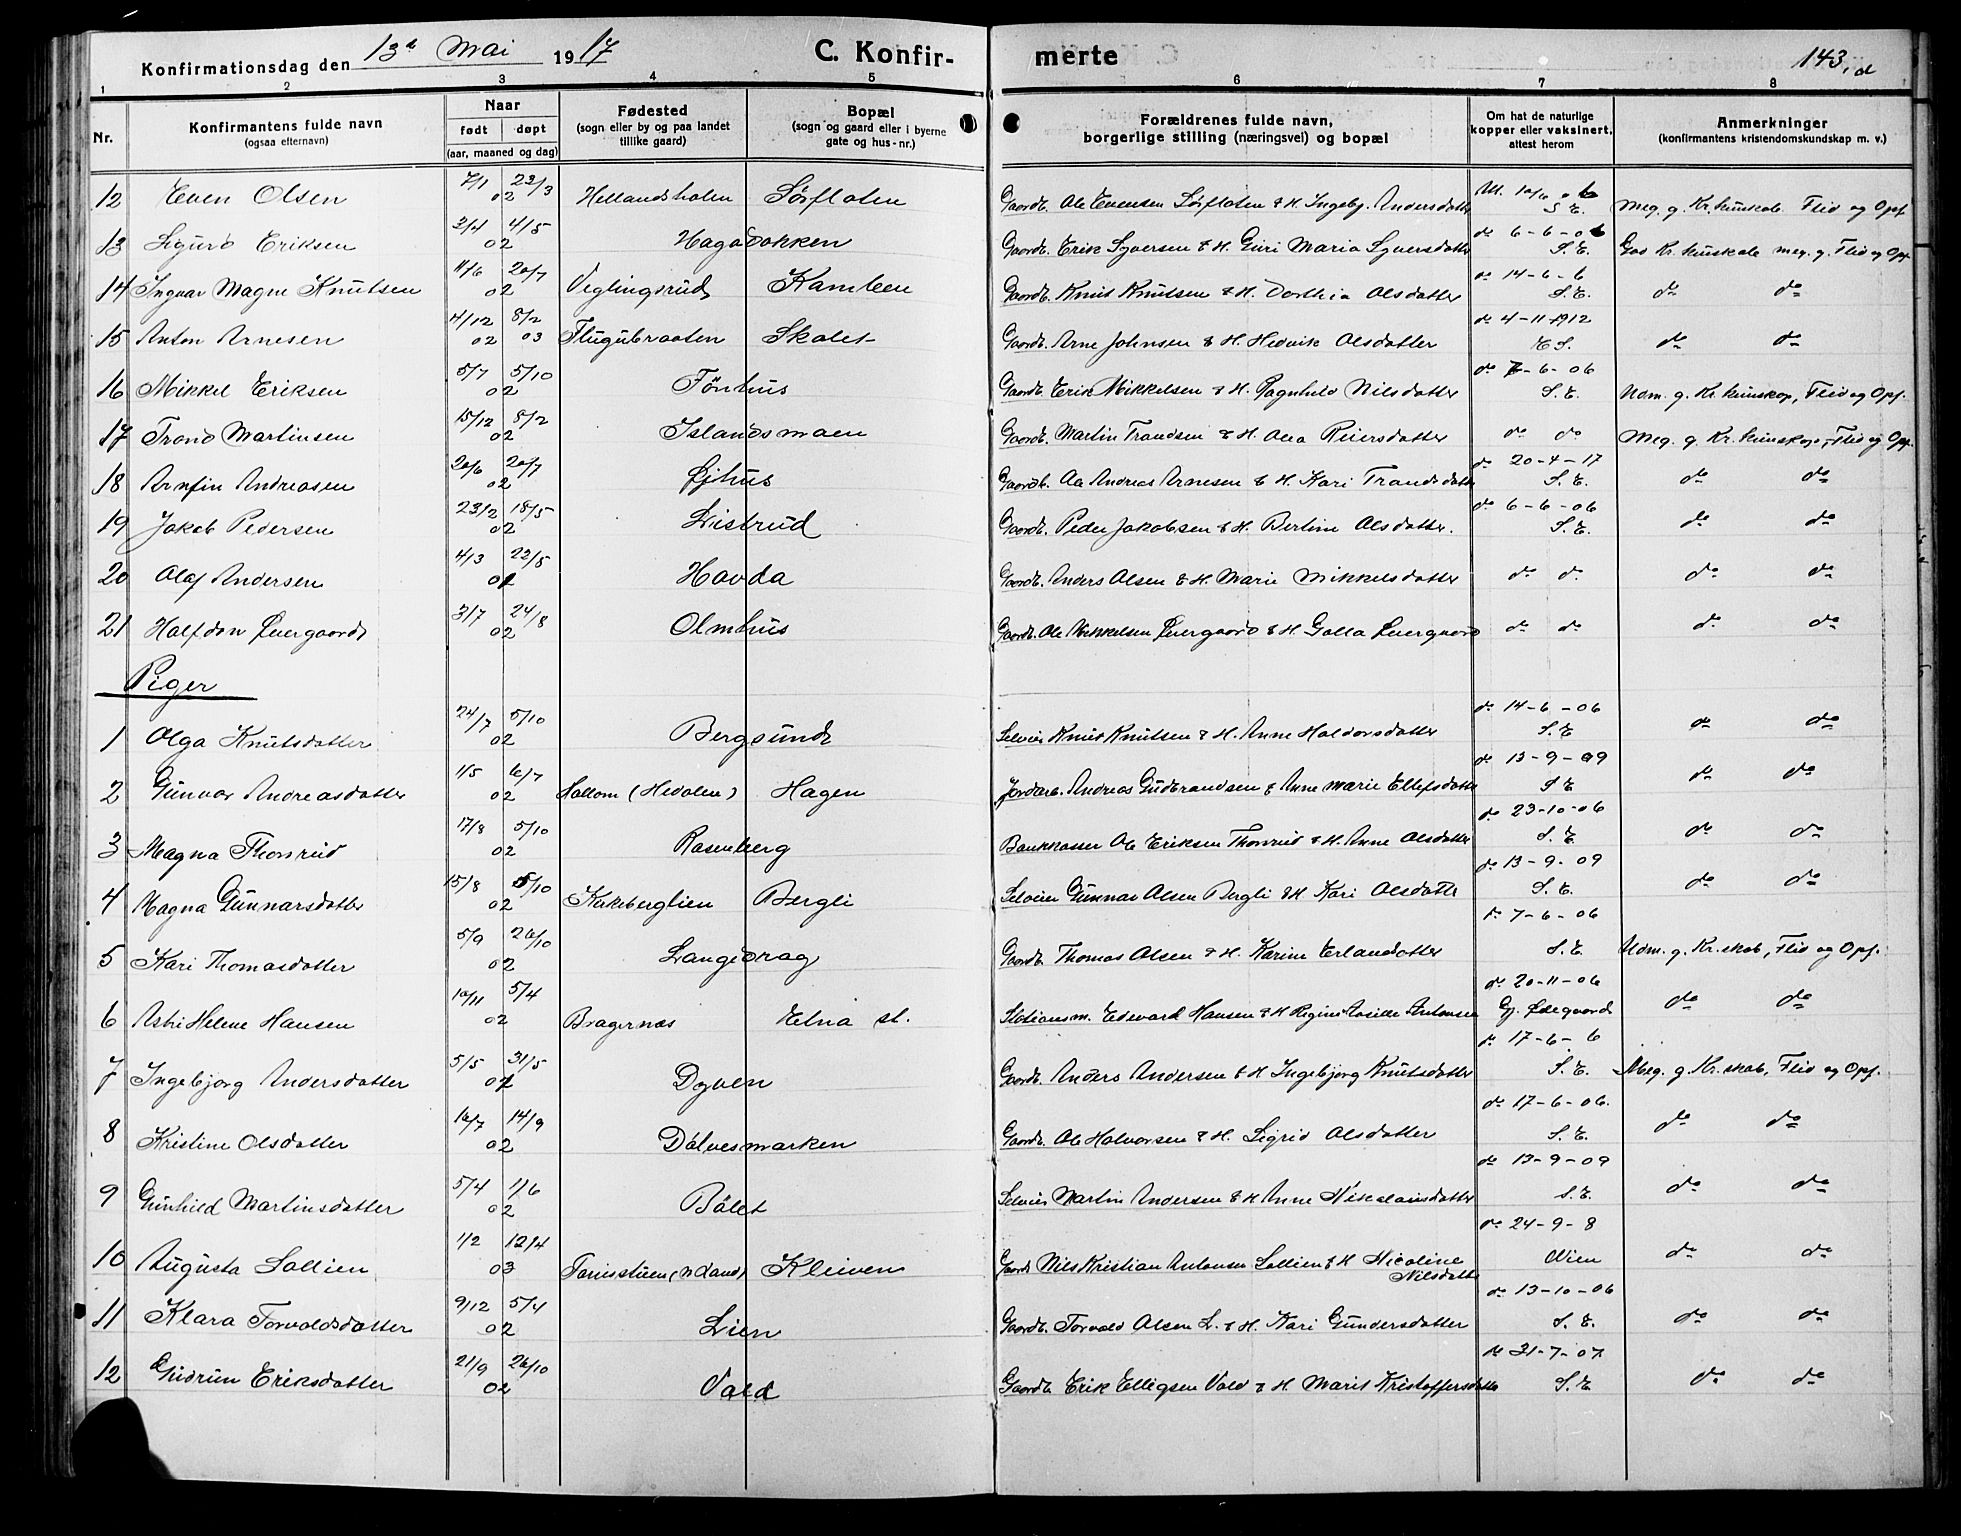 Konfirmationsdag den 13d Mai 1917 C. Konfirmerte 143, a
1 2 3 4 5 6 7 8
Nr. Konfirmantens fulde navn (ogsaa efternavn) Naar født døpt (aar, maaned og dag) Fødested (sogn eller by og paa landet tillike gaard) Bopæl (sogn og gaard eller i byerne gate og hus-nr.) Forældrenes fulde navn, borgerlige stilling (næringsvei) og bopæl Om hat de naturlige kopper eller vaksinert, attest herom Anmerkninger (konfirmantens kristendomskundskap m. v.)
12 Even Olsen 7/1 23/3 02 Hellandsholen Sørfloten Gaardb. Ole Evensen Sørfloten & H. Ingebj. Andersdatter S.E. Meg. g. Kr. kunskab. Flid og Opf.
13 Sigurd Eriksen 2/4 4/5 02 Hagabakken Gaardb. Erik Syversen & H. Guri Maria Syversdatter do 6-6-06 S.E. God Kr. kunskab meg. g. Flid og Opf.
14 Ingvar Magne Knutsen 11/6 20/7 02 Viglingsrud Kamben Gaardb. Knut Knutsen & H. Dorthia Olsdatter do 14-6-6 S.E. do do
15 Anton Arnesen 4/12 8/2 02 03 Flugubraaten Skalet Gaardb. Arne Johnsen & H. Hedvik Olsdatter do 4-11-1912 E S. do do
16 Mikkel Eriksen 5/7 5/10 02 Fönhus Gaardb. Erik Mikkelsen & H. Ragnhild Nilsdatter do 7-6-06 S.E. Udm. g. Kr. kunskap, Flid og Opf.
17 Trond Martinsen 15/12 8/2 02 Islandsmoen Gaardb. Martin Trandsen & H. Olia Reiersdatter do do Meg. g. Kr. kunskap, Flid og Opf.
18 Arnfin Andreasen 20/6 20/7 02 Øjhus Gaardb. Aa Andreas Arnesen & H. Kari Trandsdatter do 20-4-17 S.E. do do
19 Jakob Pedersen 23/2 18/5 02 Listrud Gaardb. Peder Jakobsen & H. Bertine Olsdatter. do 6-6-06 S.E. do do
20 Olaf Andersen 4/3 22/5 02 Havda Gaardb. Anders Olsen & H. Marie Mikkelsdatter do do do do
21 Halfdan Øvergaard 3/7 24/8 02 Olmhus Gaardb. Ole Mikkelsen Øvergaard & H. Golla Øvergaard do do do do
Piger
1 Olga Knutsdatter 24/7 5/10 02 Bergsund Selveier Knut Knutsen & H. Anne Haldorsdatter do 14-6-06 S.E do do
2 Gunvor Andreasdatter 1/5 6/7 02 Sollom (Hedalen) Hagen Jordarb. Andreas Gudbrandsen & Anne Marie Ellefsdatter do 13-9-09 S E do do
3 Magna Thonrud 17/8 5/10 02 Rosenberg Bankkasser Ole Eriksen Thonrud & H. Anne Olsdatter do 23-10-06 S.E. do do
4 Magna Gunnarsdatter 15/8 5/10 02 Kakeberglien Bergli Selveier Gunnar Olsen Bergli & H. Kari Olsdatter do 13-9-09 S.E. do do
5 Kari Thomasdatter 5/9 26/10 02 Langedrag Gaardb. Thomas Olsen & H. Karine Erlandsdatter do 7-6-06 S.E. Udm. g. Kr. skab, Flid og Opf.
6 Astri Helene Hansen 10/11 5/4 02 Bragernæs Etna st. Stationsm. Edevard Hansen & H Regine Antonsen do 20-11-06 Gj. Ødegaard do do
7 Ingebjørg Andersdatter 5/5 31/5 02 Dyven Gaardb. Anders Andersen & H Ingebjørg Knutsdatter do 17-6-6 S.E. Meg. g. Kr. skab, Flid og Opf.
8 Kristine Olsdatter 16/7 14/9 02 Dölvesmarken Gaardb. Ole Halvorsen & H. Sigrid Olsdatter do 17-6-06. S.E. do do
9 Gunhild Martinsdatter 5/4 1/6 02 Bölet Selveier Martin Andersen & H Anne Nikolausdatter do 13-9-09 S.E. do do
10 Augusta Sollien 1/2 12/4 03 (N Land) Kleiven Gaardb Nils Kristian Antonsen Sollien & H Nicoline Nilsdatter do 24-9-8 Wien do do
11 Klara Torvaldsdatter 9/12 5/4 02 Lien Gaardb. Torvald Olsen L. & H. Kari Gundersdatter do 13-10-06 S.E. do do
12 Gudrun Eriksdatter 21/9 26/10 02 Vold Gaardb. Erik Elligsen Vold & H Marit Kristoffersdatter do 31-7-07 S.E do do